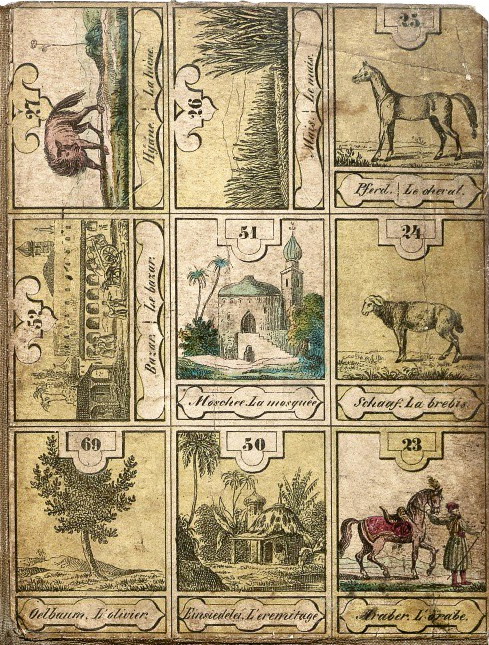 27
Hijäne. La hiène.
26
Mais. Le mais.
25
Pferd. Le cheval.
52
Bazar. Le bazar.
51
Moschee. La mosquée
24
Schaaf. La brebis.
69
Oelbaum. L'olivier.
50
Einsiedelei. L'eremitage
23
Araber. L'arabe.